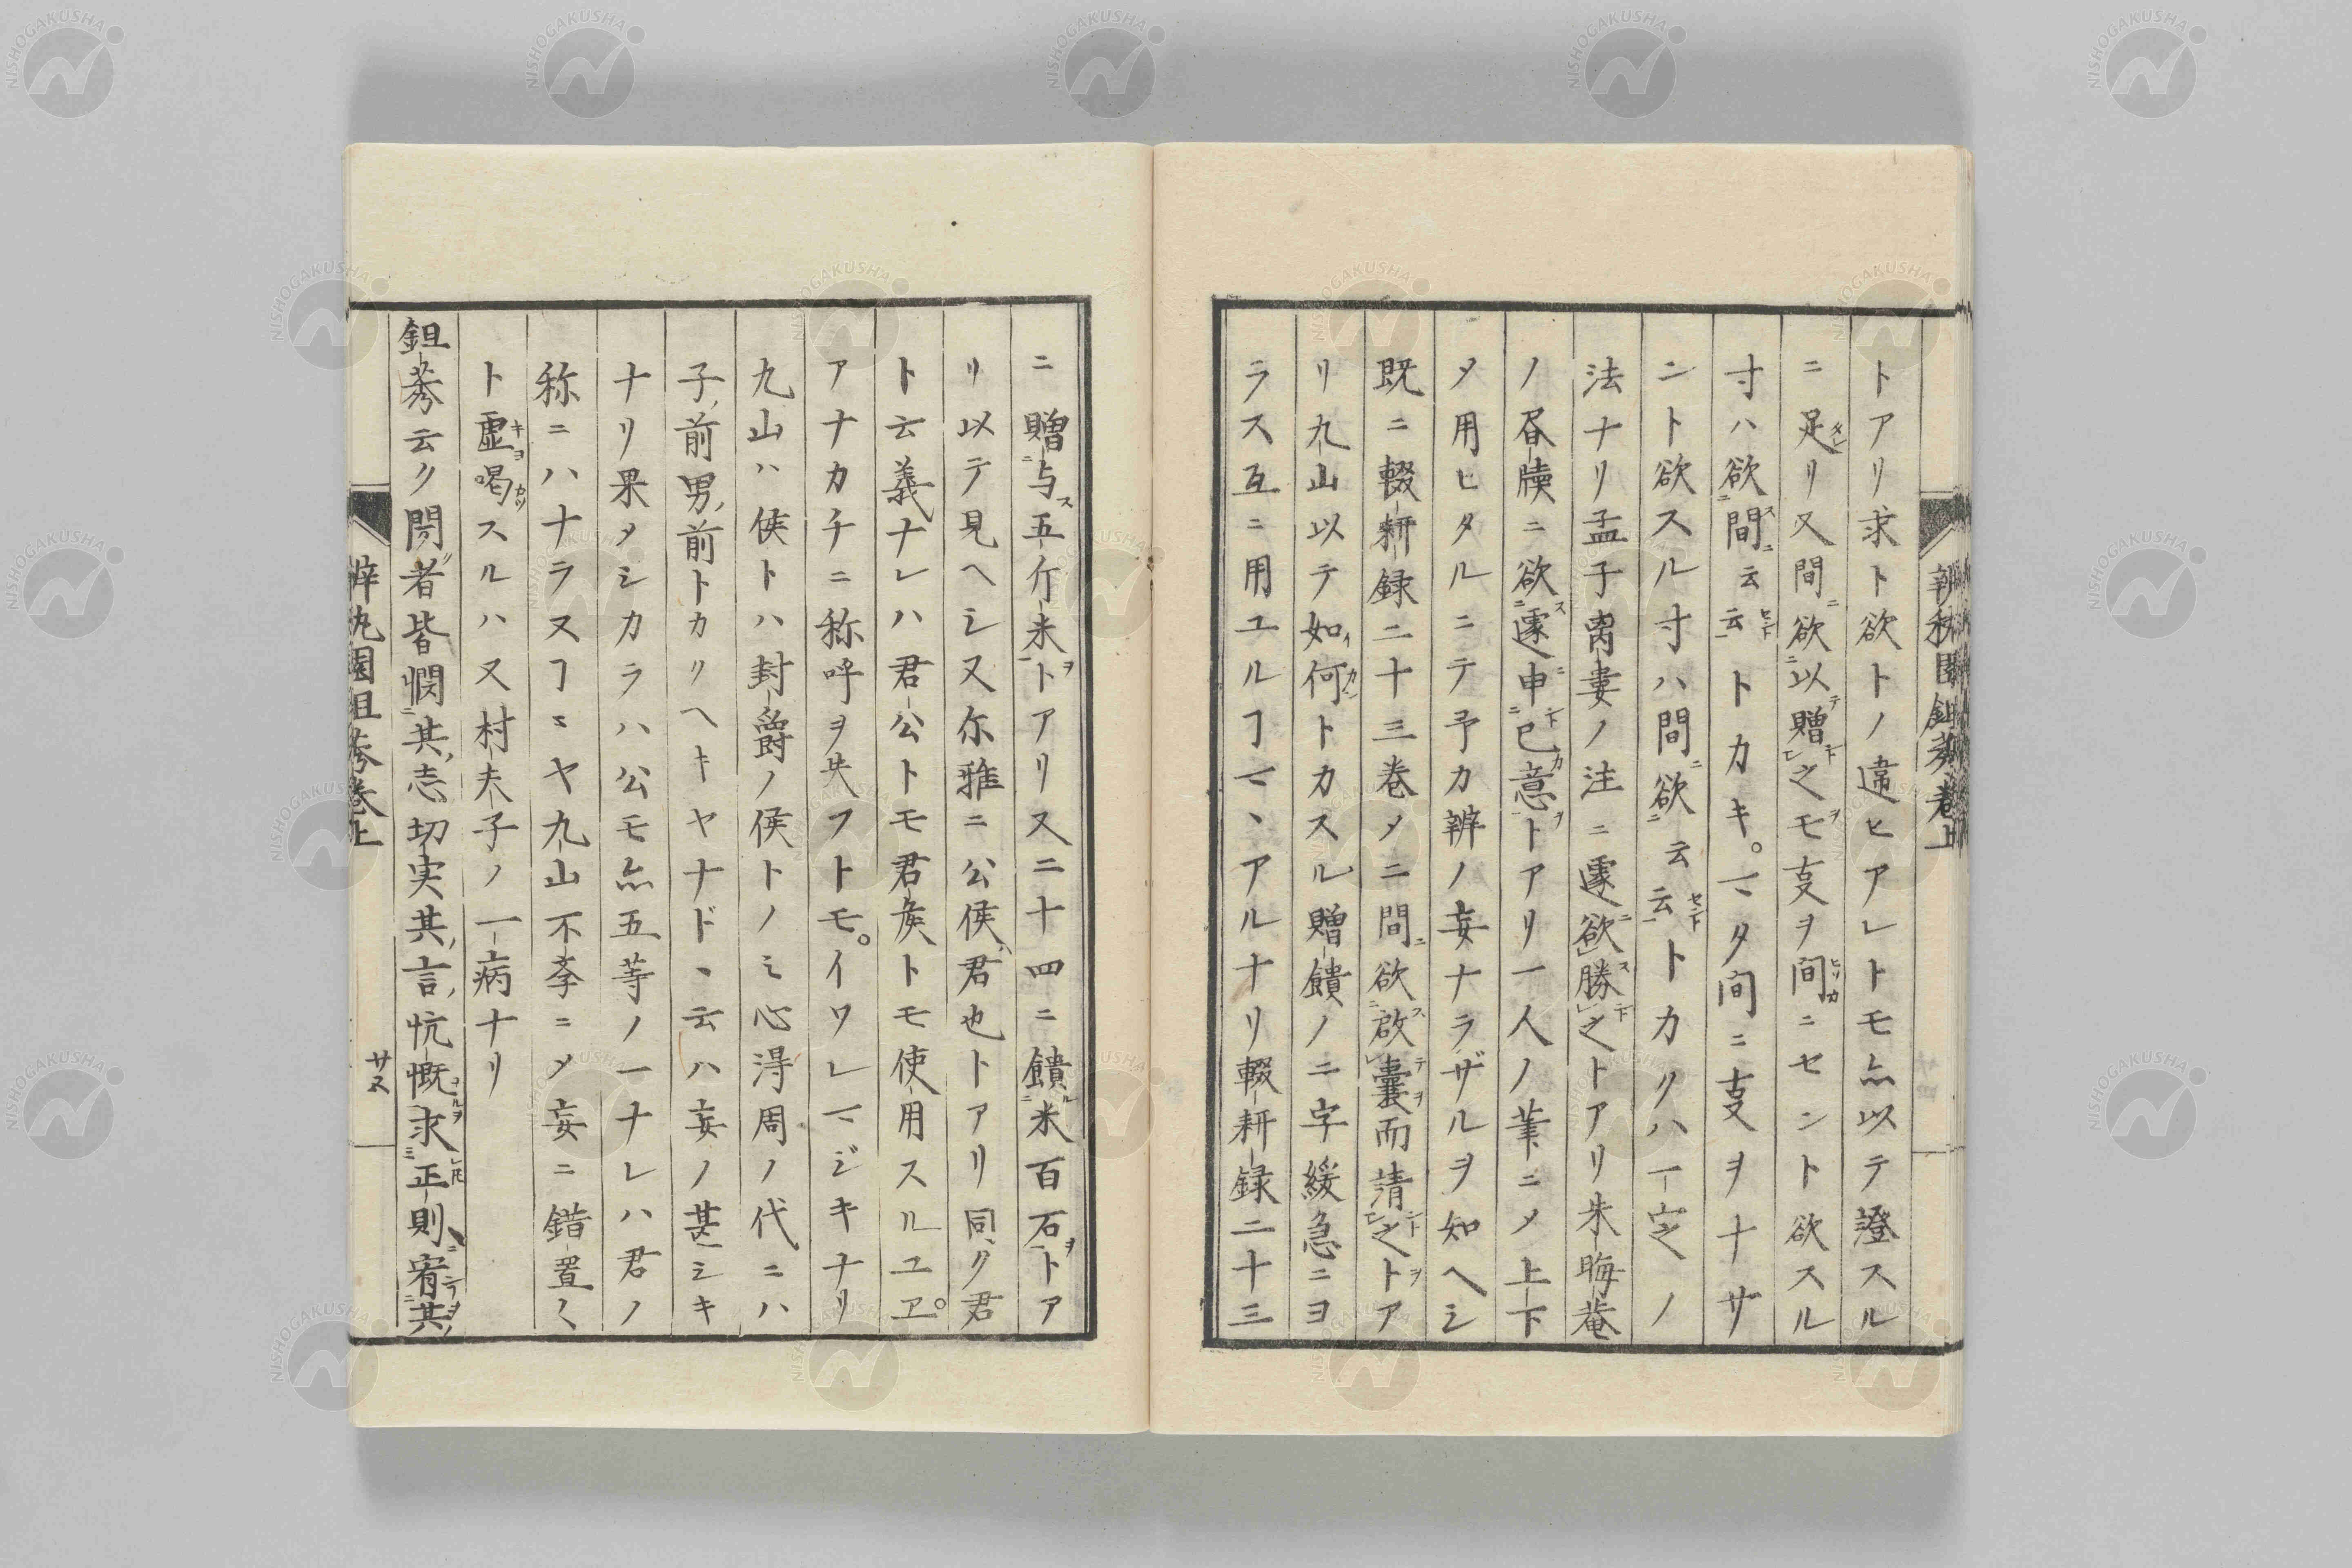 トアリ求ト欲トノ違ヒアレトモ亦以テ證スル
ニ足リ又間欲以贈之モ叓ヲ間ニセント欲スル
寸ハ欲間云云トカキ。マタ間ニ叓ヲナサ
ント欲スル寸ハ間欲云云トカクハ一定ノ
法ナリ孟子离婁ノ注ニ遽欲勝之トアリ朱晦菴
ノ尺牘ニ欲遽申己意トアリ一人ノ筆ニメ上下
メ用ヒタルニテ予カ辨ノ妄ナラザルヲ知ヘシ
既ニ輟耕録二十三巻メニ間欲啟囊而請之トア
リ九山以テ如何トカスル贈饋ノ二字緩急ニヨ
ラス互ニ用ユルヿマヽアルナリ輟耕録二十三
ニ贈与五斤米トアリ又二十四ニ饋米百石トア
リ以テ見ヘシ又尓雅ニ公侯君也トアリ同ク君
ト云義ナレハ君公トモ君侯トモ使用スルユヱ。
アナカチニ称呼ヲ失フトモ。イワレマジキナリ
九山ハ侯トハ封爵ノ侯トノミ心得周ノ代ニハ
子前男前トカクヘキヤナドヽ云ハ妄ノ甚シキ
ナリ果メシカラハ公モ亦五等ノ一ナレハ君ノ
称ニハナラヌヿニヤ九山不孝ニメ妄ニ錯置く
ト虚喝スルハ又村夫子ノ一病ナリ
鉏莠云ク閲者皆憫其志切実其言忼慨求正則宥其
辨秇園鉏莠巻上